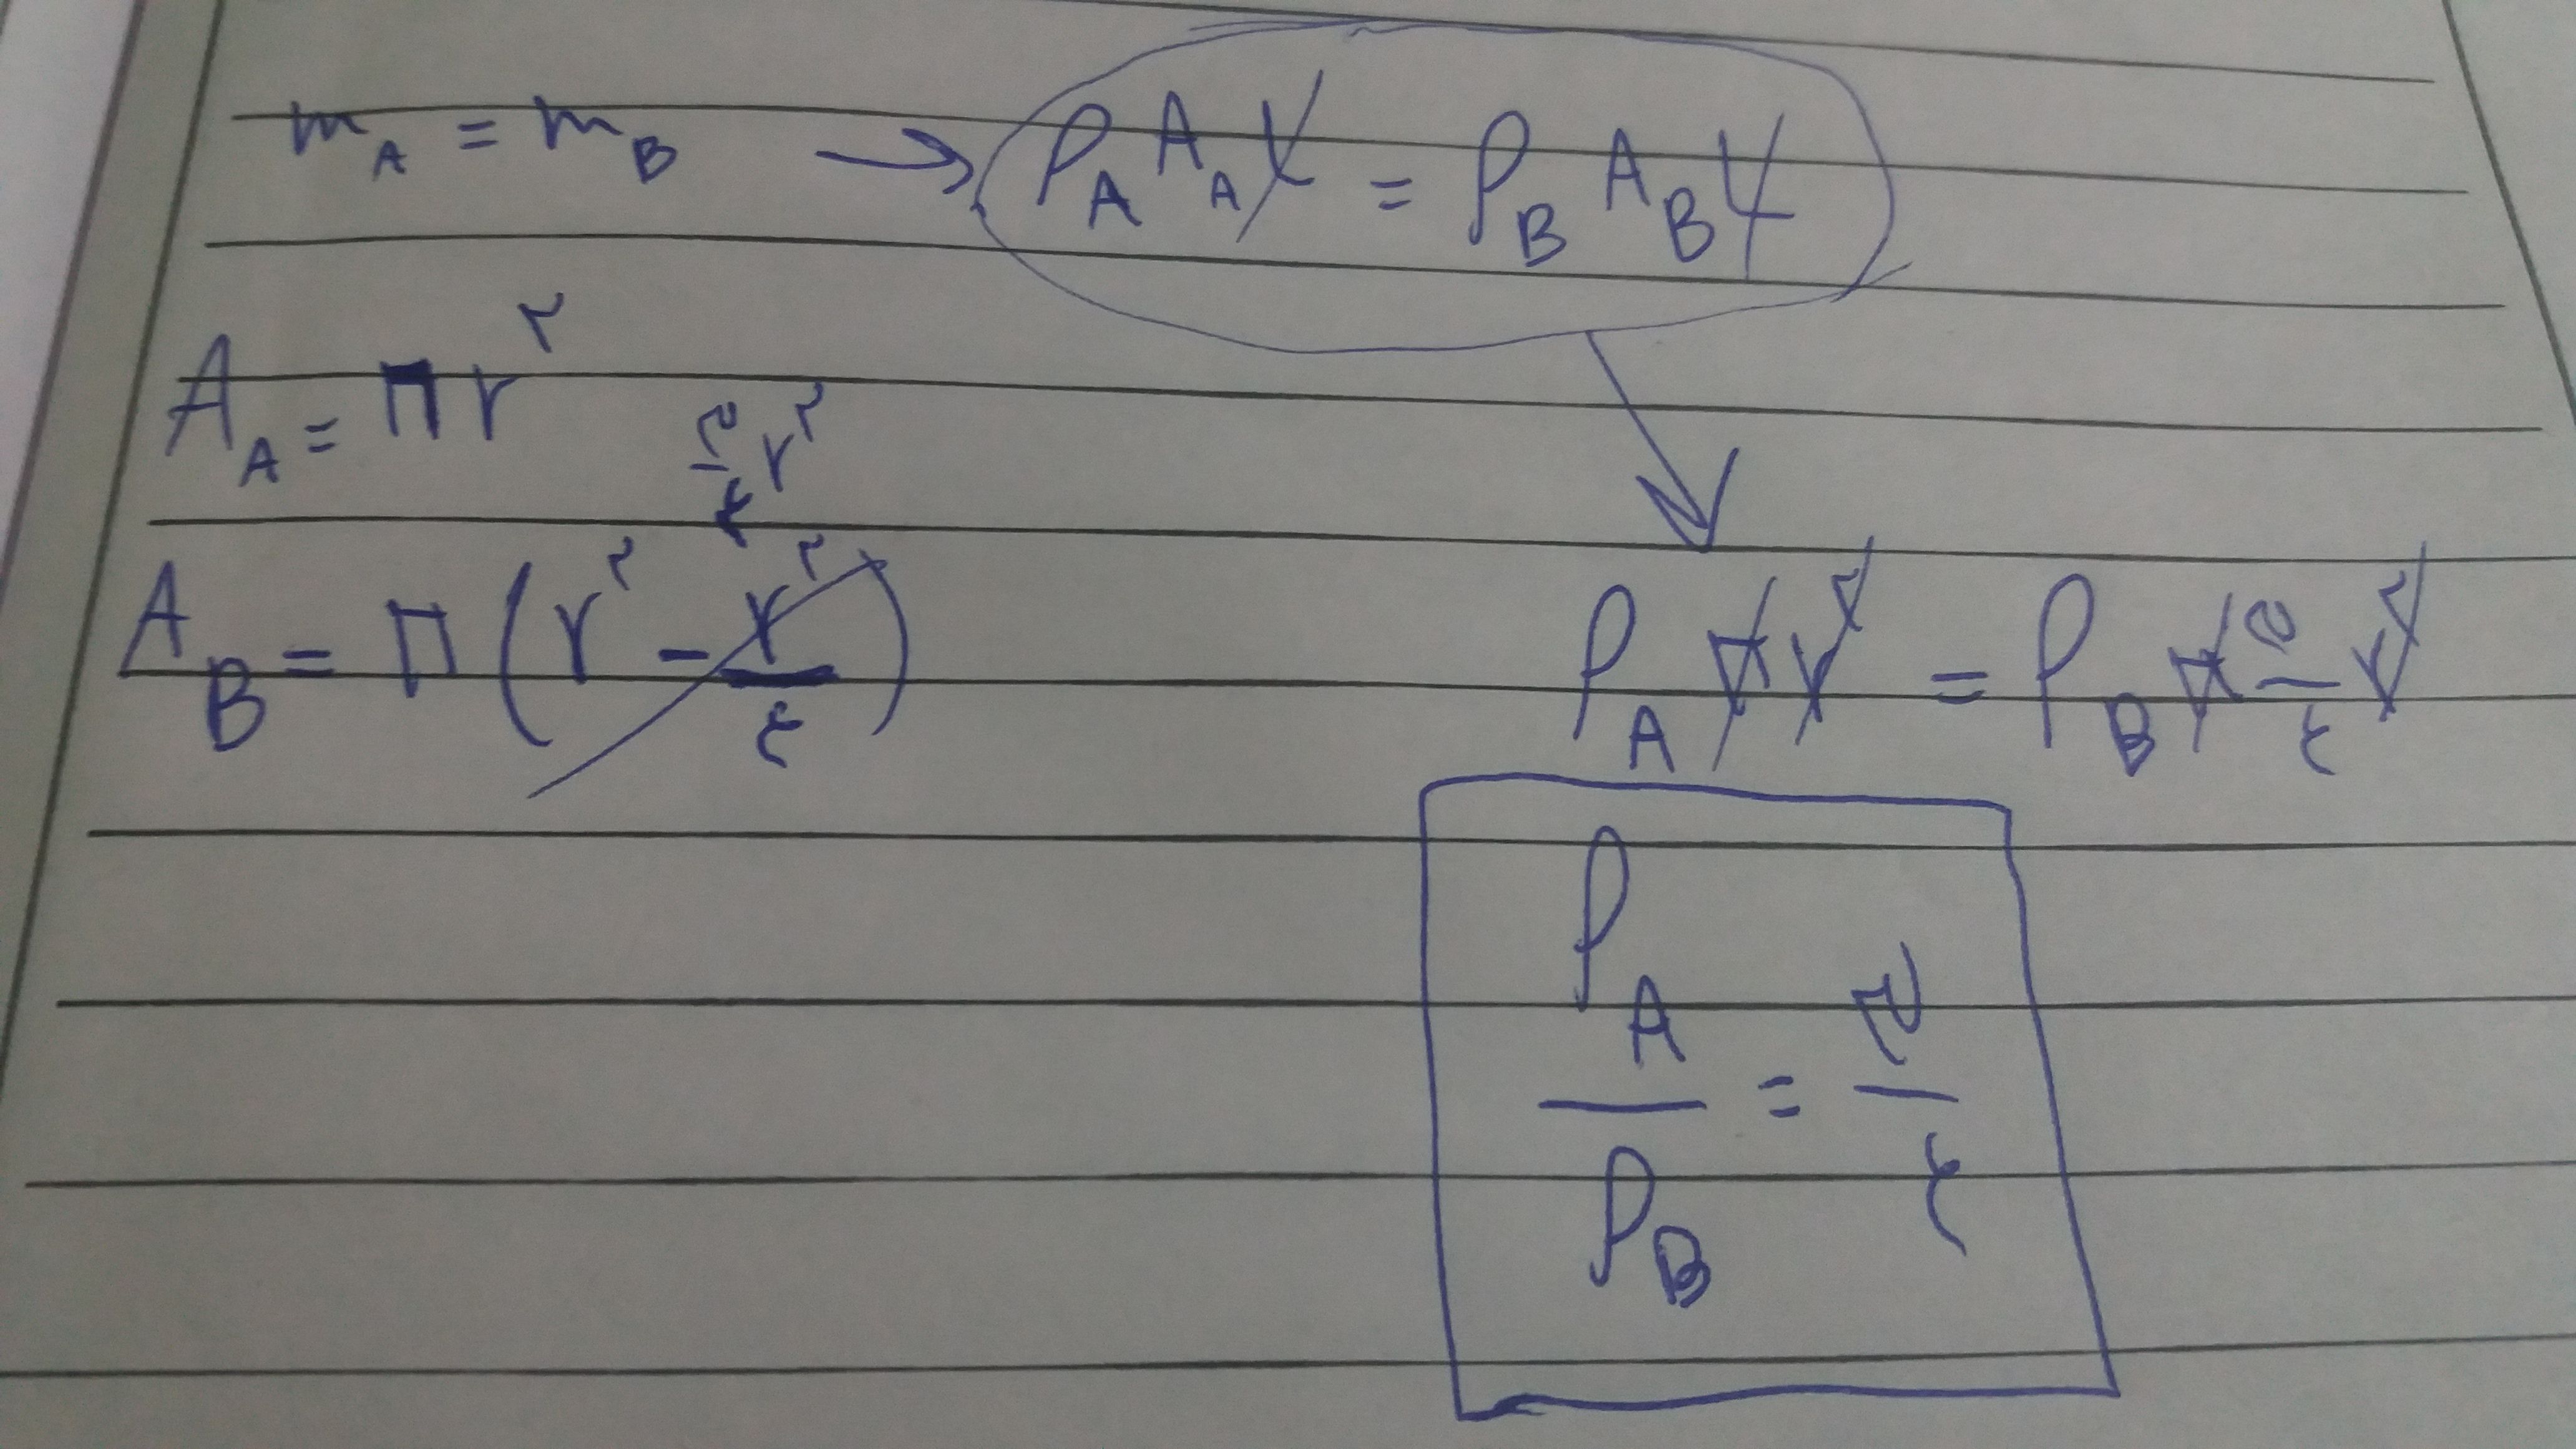 m_A = m_B → ρ_A A_A L = ρ_B A_B L
A_A = π r^۲
۳/۴ r^۲
A_B = π (r^۲ - r^۲/۴)
ρ_A π r^۲ = ρ_B π ۳/۴ r^۲
ρ_A/ρ_B = ۳/۴